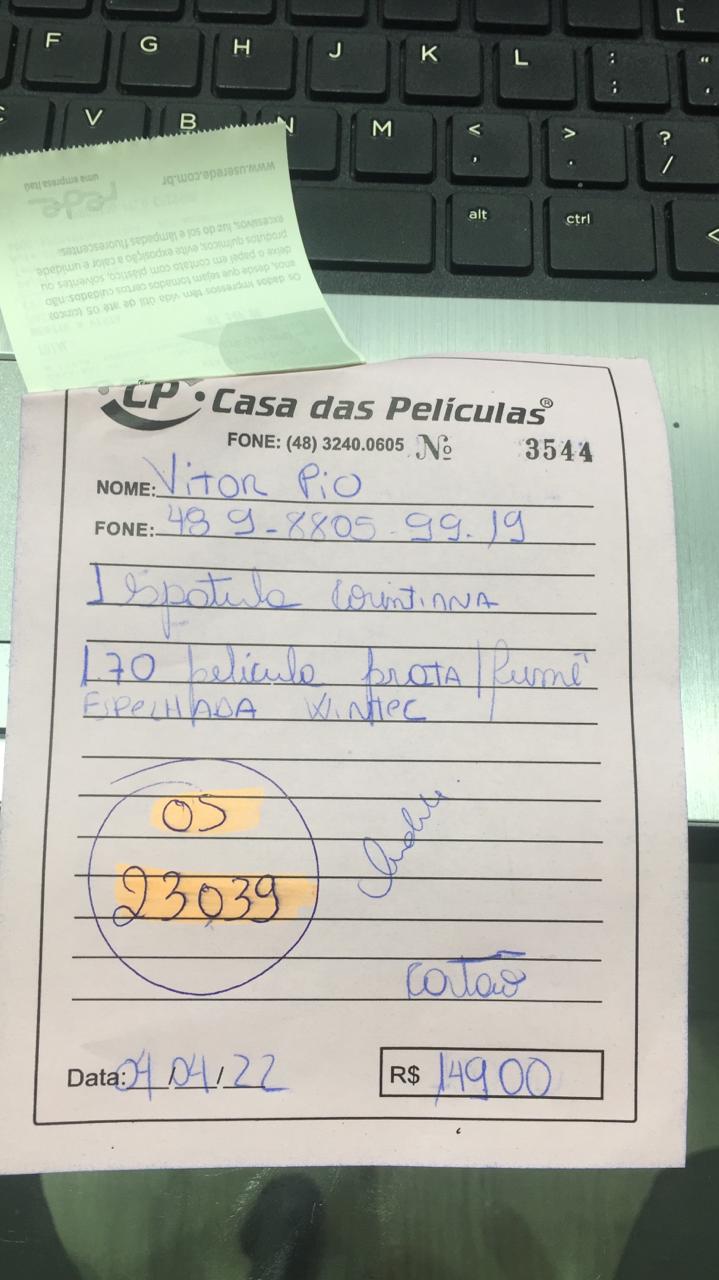 F G H J K L : ; " ' [
C V B N M < , > . ? /
alt ctrl <
www.userede.com.br
rede
uma empresa Itaú
Os dados impressos têm vida útil de até 05 (cinco)
anos, desde que sejam tomados certos cuidados: não
deixe o papel em contato com plástico, solventes ou
produtos químicos, evite exposição a calor e umidade
excessivos, luz do sol e lâmpadas fluorescentes.
CP • Casa das Películas®
FONE: (48) 3240.0605 Nº 3544
NOME: Vitor Pio
FONE: 48 9-8805-99.19
1 espatula corintiana
1.70 pelicula prata/fumê
ESPELHADA WINTEC
OS
23039
cartão
Data: 04/04/22 R$ 149 00